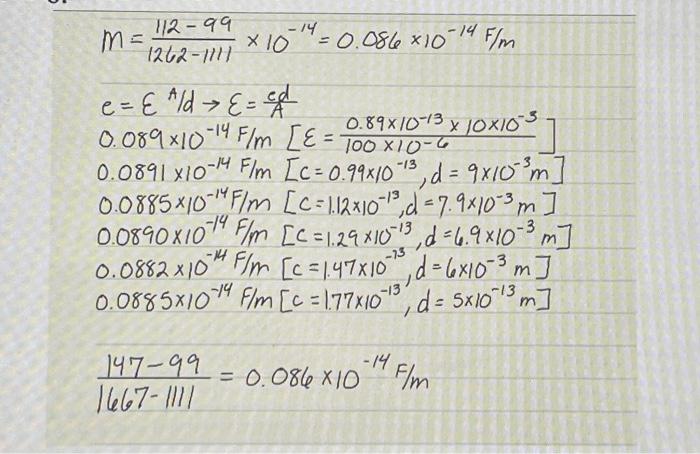 m = 112 - 99 / 1262 - 1111 × 10^-14 = 0.086 × 10^-14 F/m
e = ε A/d → ε = cd/A
0.089 × 10^-14 F/m [ε = 0.89 × 10^-13 × 10 × 10^-3 / 100 × 10^-6]
0.0891 × 10^-14 F/m [c = 0.99 × 10^-13, d = 9 × 10^-3 m]
0.0885 × 10^-14 F/m [c = 1.12 × 10^-13, d = 7.9 × 10^-3 m]
0.0890 × 10^-14 F/m [c = 1.29 × 10^-13, d = 6.9 × 10^-3 m]
0.0882 × 10^-14 F/m [c = 1.47 × 10^-13, d = 6 × 10^-3 m]
0.0885 × 10^-14 F/m [c = 1.77 × 10^-13, d = 5 × 10^-13 m]
147 - 99 / 1667 - 1111 = 0.086 × 10^-14 F/m